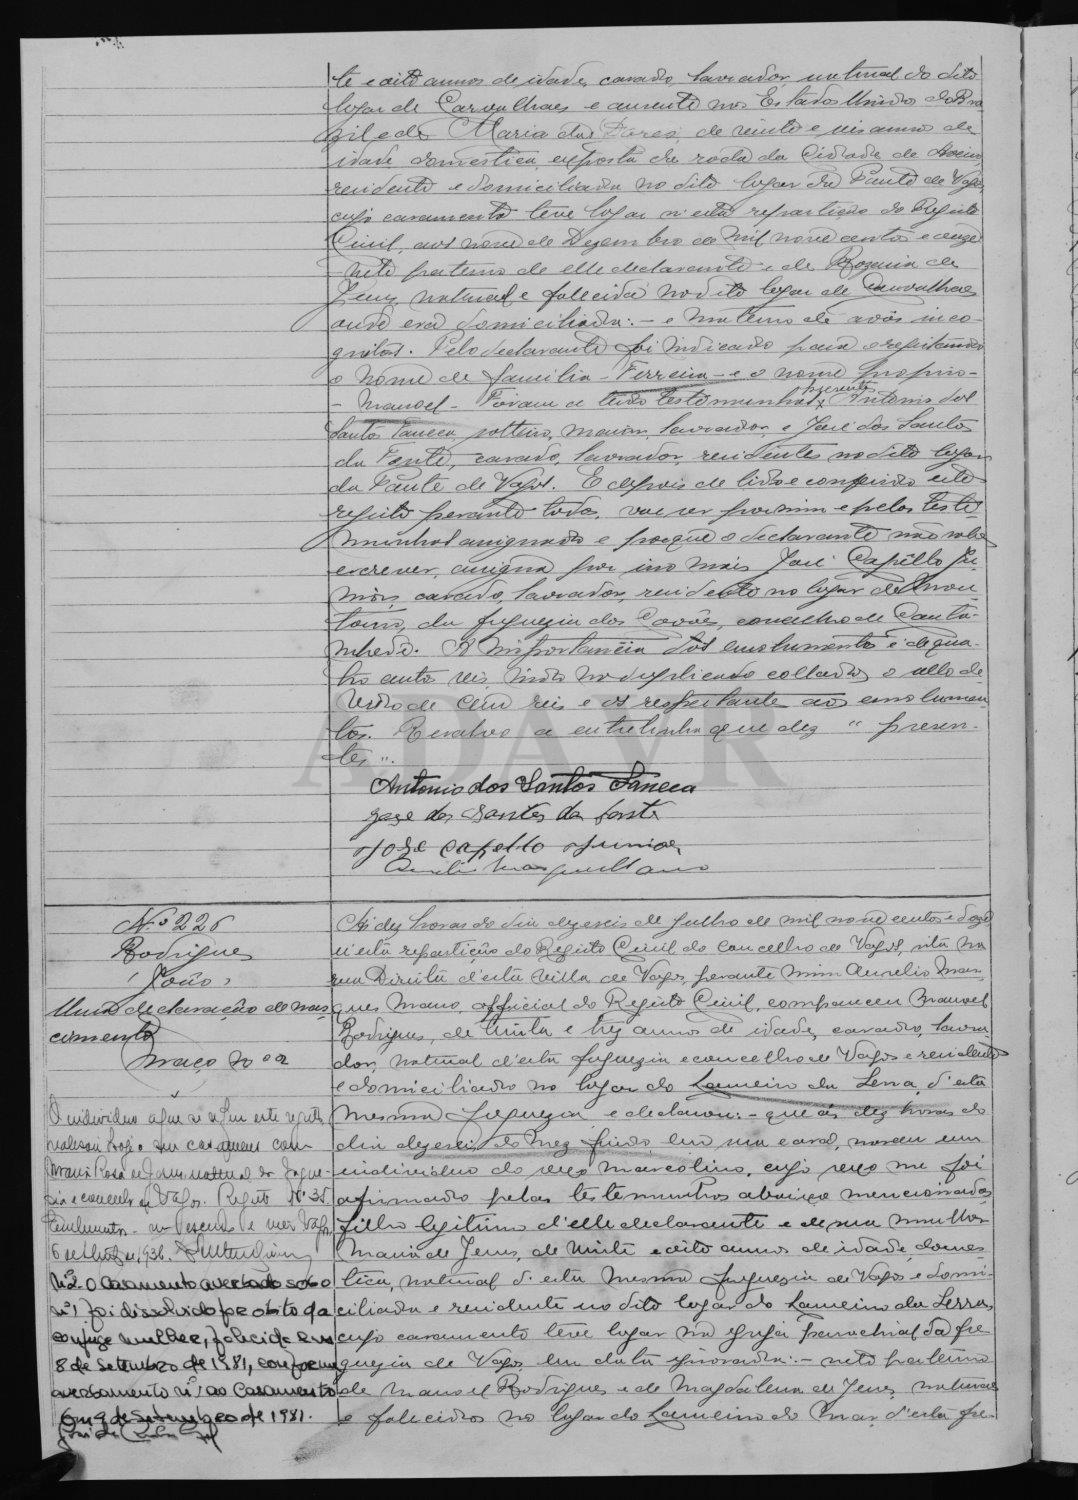 te e oito annos de idade, casado, lavrador, natural do dito
logar de Carvalhaes e ausente nos Estados Unidos do Bra-
zil e de Maria das Dores, de vinte e seis annos de
idade domestica, exposta da roda da Cidade de Aveiro,
residente e domiciliada no dito logar da Fonte de Vagos,
cujo casamento teve logar n'esta repartição do Registo
Civil, aos nove de Dezembro de mil nove centos e onze
neto paterno de elle declarante e de Rozaria de
Jesus, natural e fallecida no dito logar de Carvalhaes
onde era domiciliada: - e materno de avós inco-
gnitos. Pelo declarante foi indicado para o registando
o nome de familia - Ferreira - e o nome proprio -
- Manoel - Foram a tudo testemunhas presentes Antonio dos
Santos Saneca, solteiro, maior, lavrador, e José dos Santos
da Fonte, casado, lavrador, residentes no dito logar
da Fonte de Vagos. E depois de lido e conferido este
registo perante todos, vae ser por mim e pelas teste-
munhas assignado e porque o declarante não sabe
escrever, assigna por isso mais José Capello Ju-
nior, casado, lavrador, residente no logar de
da freguezia dos Covões, concelho de Canta-
nhede. A importancia dos emolumentos é de qua-
tro centos reis, indo no duplicado collado o sello de
verso de cem reis e os respeitante aos emolumen-
tos. Resalvo a entrelinha que diz " presen-
tes ".
Antonio dos Santos Saneca
José dos Santos da fonte
José Capello Junior
Aurelio Marques Mano
N.º 226
Rodrigues
João
Uma declaração de nas-
cimento
Maço nº 2
Ás dez horas do dia dezeseis de Julho de mil nove centos e doze
n'esta repartição do Registo Civil do concelho de Vagos, sita na
rua Direita d'esta villa de Vagos, perante mim Aurelio Mar-
ques Mano, official do Registo Civil, compareceu Manoel
Rodrigues, de trinta e trez annos de idade, casado, lavra-
dor, natural d'esta freguezia e concelho de Vagos e residente
e domiciliado no logar do Lameiro da Serra, d'esta
mesma freguezia e declarou: - que ás dez horas do
dia dezeseis do mez findo, em sua casa, nasceu um
individuo do sexo masculino, cujo sexo me foi
afirmado pelas testemunhas abaixo mencionadas
filho legitimo d'elle declarante e de sua mulher
Maria de Jesus, de vinte e oito annos de idade, domes-
tica, natural d'esta mesma freguezia de Vagos e domi-
ciliada e residente no dito logar do Lameiro da Serra,
cujo casamento teve logar na egreja parochial da fre-
guezia de Vagos, em data ignorada: - neto paterno
de Manoel Rodrigues e de Magdalena de Jesus, naturaes
e fallecidos no logar do Lameiro do Mar, d'esta fre-
O individuo a que se refere este registo
realisou hoje o seu casamento com
Maria Rosa de Jesus, natural da fregue-
sia e concelho de Vagos. Registo Nº 35
Vagos,
6 de 1936.
Nº2. O casamento averbado sob o
nº1, foi dissolvido por óbito da
conjuge mulher, falecida em
8 de setembro de 1981, conforme
averbamento nº1 ao casamento
Em 9 de setembro de 1981.